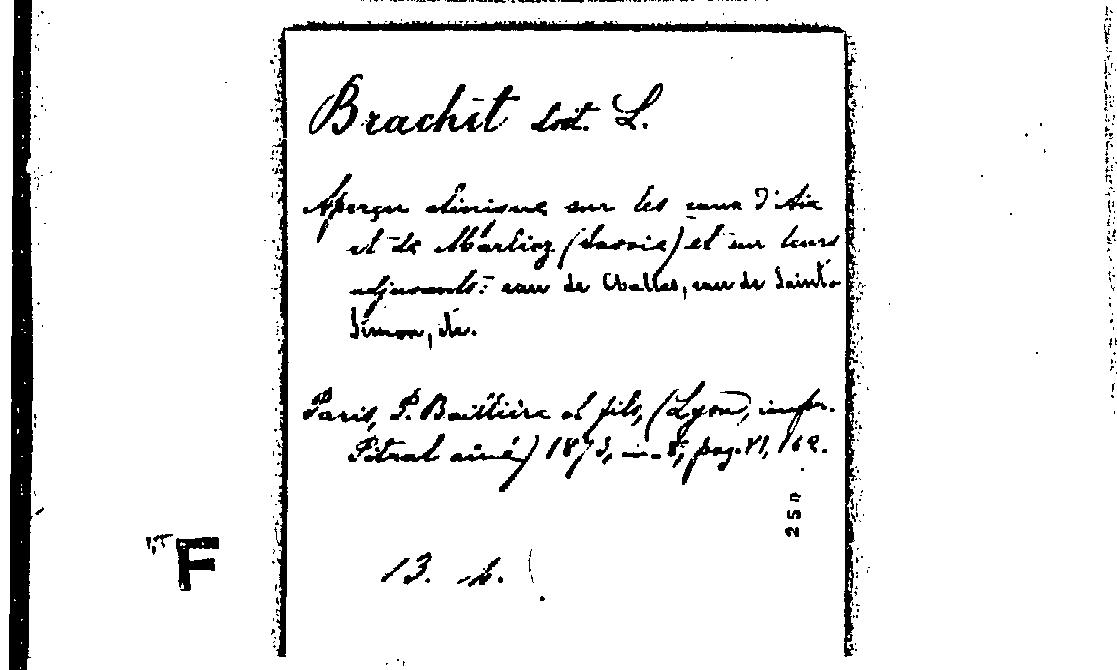 Brachet doct. L.
Aperçu clinique sur les eaux d'Aix
et de Marlioz (Savoie) et sur leurs
adjuvants: eau de Challes, eau de Saint-
Simon, etc.
Paris, P. Baillière et fils, (Lyon, impr.
Pitrat ainé) 1875, in-8, pag. VI, 162.
250
F
13. b.